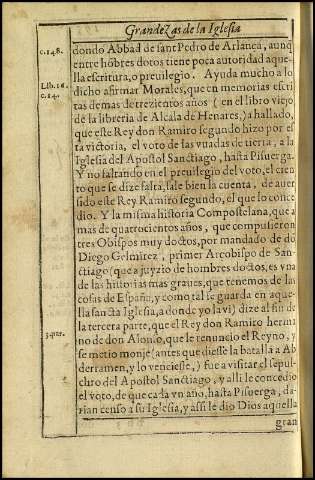 Grandezas de la Iglesia
c.148.
dondo Abbad de sant Pedro de Arlança, aunq̃
entre hõbres dotos tiene poca autoridad aque-
Lib.16.
c.14.
lla escritura, o preuilegio. Ayuda mucho a lo
dicho afirmar Morales, que en memorias escri
tas de mas de trezientos años (en el libro viejo
de la libreria de Alcala de Henares,) a hallado,
que este Rey don Ramiro segundo hizo por es
ta victoria, el voto de las yuadas de tierra, a la
Iglesia del Apostol Sanctiago, hasta Pisuerga.
Y no faltando en el preuilegio del voto, el cien
to que se dize falta, sale bien la cuenta, de auer
sido este Rey Ramiro segundo, el que lo conce
dio. Y la misma historia Compostelana, que a
mas de quatrocientos años, que compusieron
tres Obispos muy doctos, por mandado de dõ
Diego Gelmirez, primer Arcobispo de San-
ctiago (que a juyzio de hombres doctos, es vna
de las historias mas graues, que tenemos de las
cosas de España, y como tal se guarda en aque-
lla sancta Iglesia, a donde yo la vi) dize al fin de
3.par.
la tercera parte, que el Rey don Ramiro herma
no de don Alonso, que le renuncio el Reyno, y
se metio monje (antes que diesse la batalla a Ab
derramen, y lo venciesse,) fue a visitar el sepul-
chro del Apostol Sanctiago, y alli le concedio
el voto, de que cada vn año, hasta Pisuerga, da-
rian censo a su Iglesia, y assi le dio Dios aquella
gran